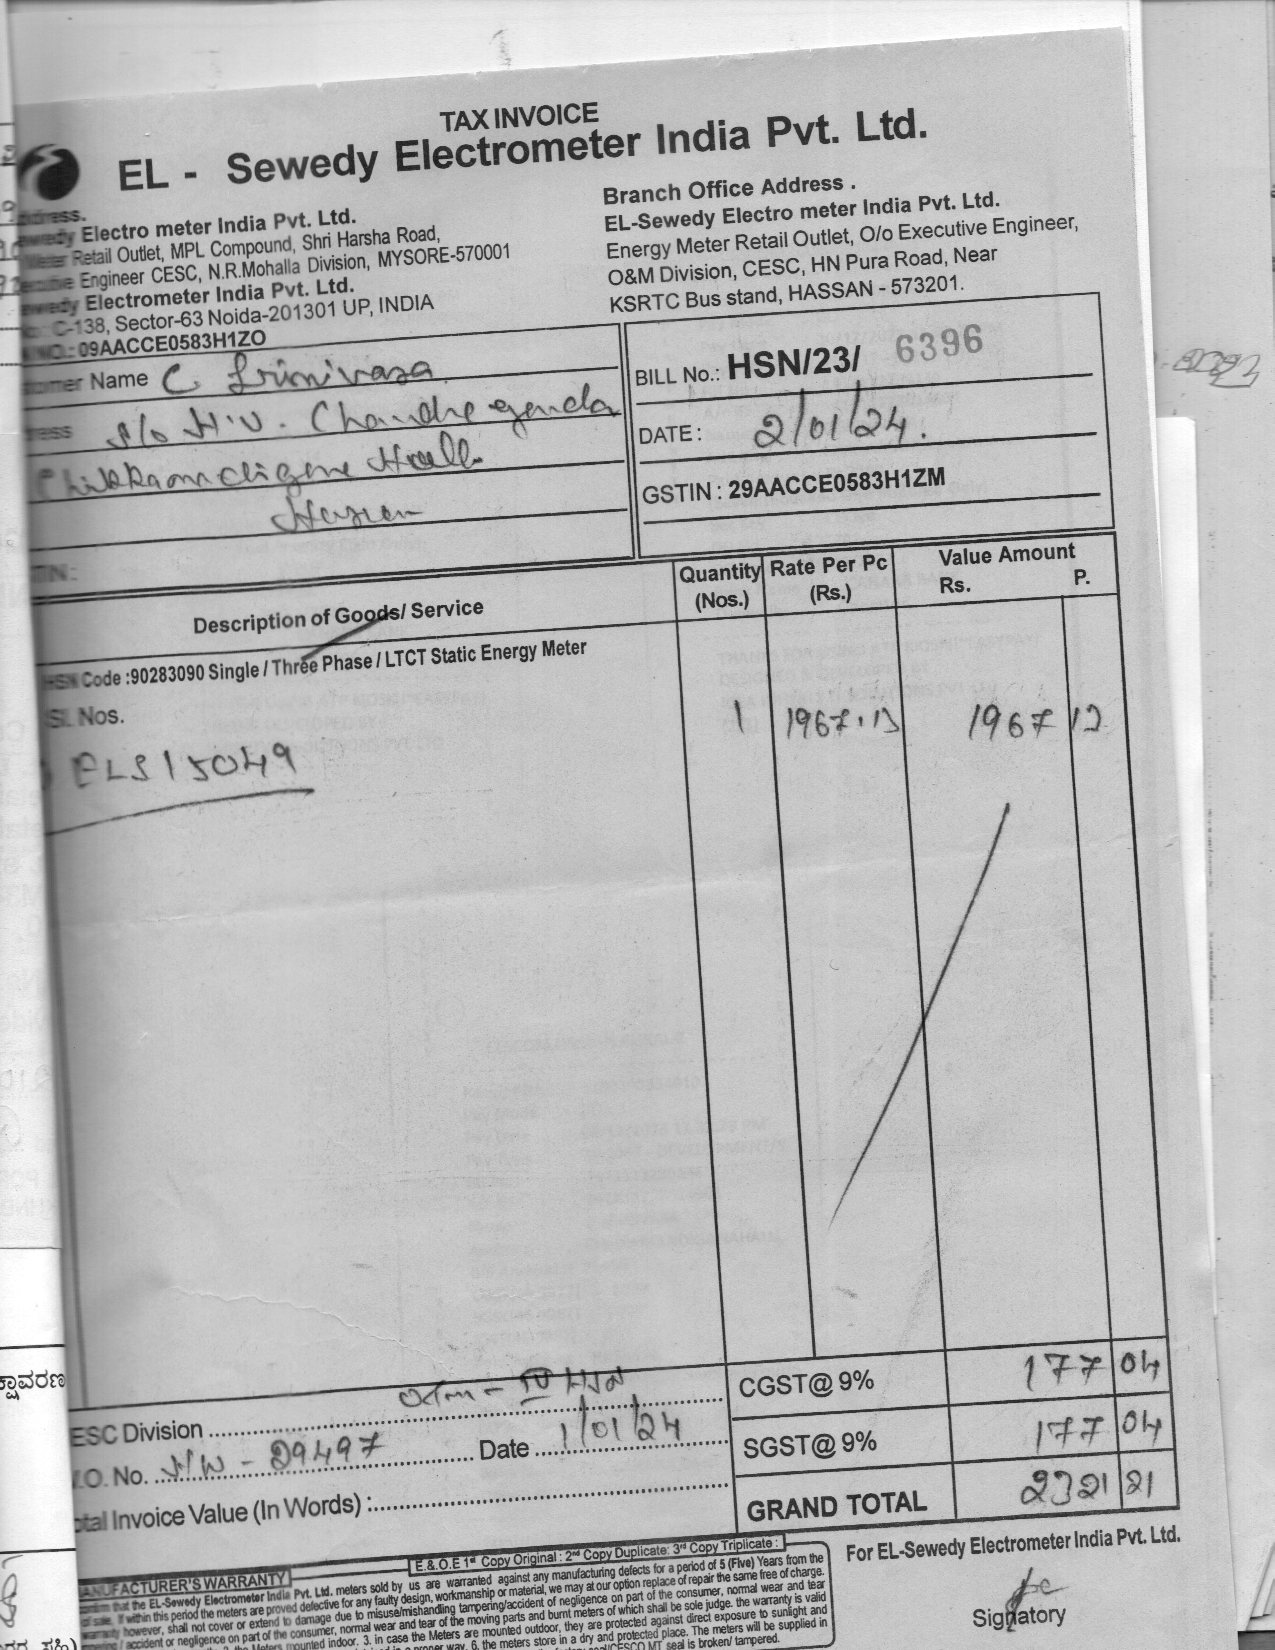 TAX INVOICE
EL - Sewedy Electrometer India Pvt. Ltd.
Electro meter India Pvt. Ltd.
Retail Outlet, MPL Compound, Shri Harsha Road,
Engineer CESC, N.R.Mohalla Division, MYSORE-570001
Electrometer India Pvt. Ltd.
C-138, Sector-63 Noida-201301 UP, INDIA
09AACCE0583H1ZO
Branch Office Address .
EL-Sewedy Electro meter India Pvt. Ltd.
Energy Meter Retail Outlet, O/o Executive Engineer,
O&M Division, CESC, HN Pura Road, Near
KSRTC Bus stand, HASSAN - 573201.
Name C. Srinivasa
S/o H.V. Chandregowda
Hassan
BILL No.: HSN/23/ 6396
DATE : 2/01/24.
GSTIN : 29AACCE0583H1ZM
Description of Goods/ Service
Quantity (Nos.)
Rate Per Pc (Rs.)
Value Amount
Rs. P.
HSN Code :90283090 Single / Three Phase / LTCT Static Energy Meter
Sl. Nos.
1 1967.13 1967 13
ELS15049
CGST@ 9% 177 04
SGST@ 9% 177 04
GRAND TOTAL 2321 21
ESC Division
.O. No. S/W - 29497 Date 1/01/24
Invoice Value (In Words) :
E.& O.E 1st Copy Original : 2nd Copy Duplicate: 3rd Copy Triplicate :
MANUFACTURER'S WARRANTY
that the EL-Sewedy Electrometer India Pvt. Ltd. meters sold by us are warranted against any manufacturing defects for a period of 5 (Five) Years from the
of sale. If within this period the meters are proved defective for any faulty design, workmanship or material, we may at our option replace of repair the same free of charge.
warranty however, shall not cover or extend to damage due to misuse/mishandling tampering/accident of negligence on part of the consumer, normal wear and tear
/ accident or negligence on part of the consumer, normal wear and tear of the moving parts and burnt meters of which shall be sole judge. the warranty is valid
mounted indoor. 3. in case the Meters are mounted outdoor, they are protected against direct exposure to sunlight and
way. 6. the meters store in a dry and protected place. The meters will be supplied in
MT seal is broken/ tampered.
For EL-Sewedy Electrometer India Pvt. Ltd.
Signatory